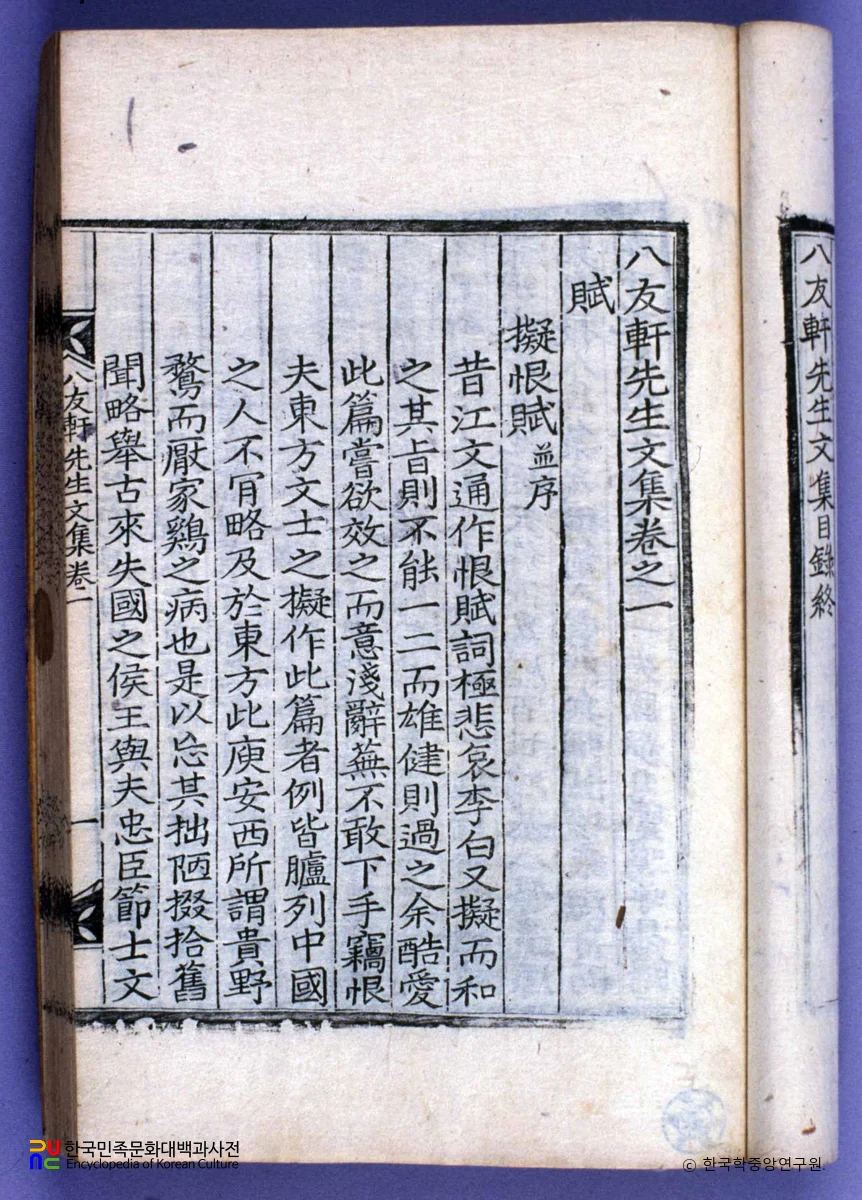 八友軒先生文集目錄終
八友軒先生文集卷之一
賦
擬恨賦 並序
昔江文通作恨賦詞極悲哀李白又擬而和
之其旨則不能一二而雄健則過之余酷愛
此篇嘗欲效之而意淺辭蕪不敢下手竊恨
夫東方文士之擬作此篇者例皆臚列中國
之人不肎略及於東方此庾安西所謂貴野
鶩而厭家鷄之病也是以忘其拙陋掇拾舊
聞略擧古來失國之侯王與夫忠臣節士文
八友軒先生文集卷一
一
한국민족문화대백과사전
Encyclopedia of Korean Culture
ⓒ 한국학중앙연구원